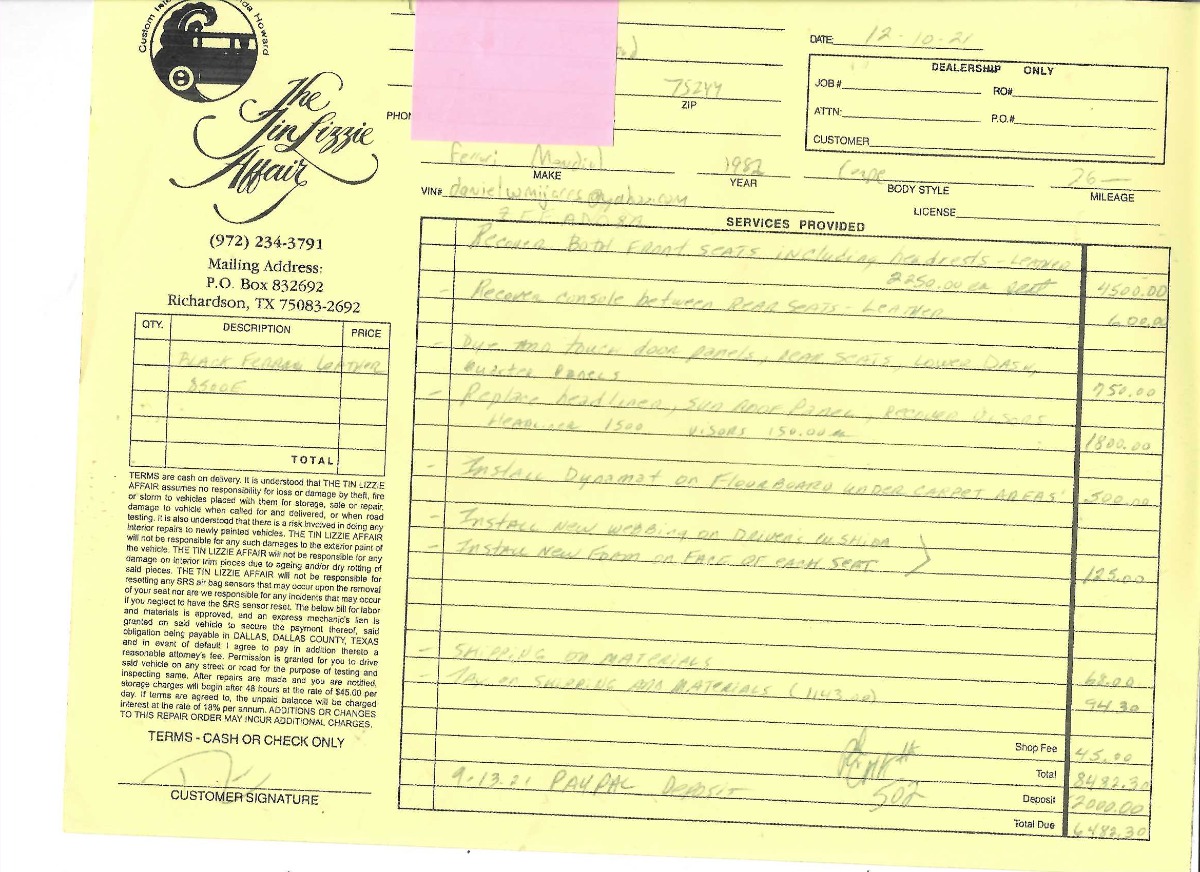 Howard
The
Tin Lizzie
Affair
(972) 234-3791
Mailing Address:
P.O. Box 832692
Richardson, TX 75083-2692
QTY. DESCRIPTION PRICE
BLACK FERRARI LEATHER
TOTAL
TERMS are cash on delivery. It is understood that THE TIN LIZZIE
AFFAIR assumes no responsibility for loss or damage by theft, fire
or storm to vehicles placed with them for storage, sale or repair,
damage to vehicle when called for and delivered, or when road
testing. It is also understood that there is a risk involved in doing any
interior repairs to newly painted vehicles. THE TIN LIZZIE AFFAIR
will not be responsible for any such damages to the exterior paint of
the vehicle. THE TIN LIZZIE AFFAIR will not be responsible for any
damage on interior trim pieces due to ageing and/or dry rotting of
said pieces. THE TIN LIZZIE AFFAIR will not be responsible for
resetting any SRS air bag sensors that may occur upon the removal
of your seat nor are we responsible for any incidents that may occur
if you neglect to have the SRS sensor reset. The below bill for labor
and materials is approved, and an express mechanic's lien is
granted on said vehicle to secure the payment thereof, said
obligation being payable in DALLAS, DALLAS COUNTY, TEXAS
and in event of default I agree to pay in addition thereto a
reasonable attorney's fee. Permission is granted for you to drive
said vehicle on any street or road for the purpose of testing and
inspecting same. After repairs are made and you are notified,
storage charges will begin after 48 hours at the rate of $45.00 per
day. If terms are agreed to, the unpaid balance will be charged
interest at the rate of 18% per annum. ADDITIONS OR CHANGES
TO THIS REPAIR ORDER MAY INCUR ADDITIONAL CHARGES.
TERMS - CASH OR CHECK ONLY
CUSTOMER SIGNATURE
75244
ZIP
DATE: 12-10-21
DEALERSHIP ONLY
JOB # RO#
ATTN: P.O.#
CUSTOMER
Ferrari Mondial 1982 Coupe 26—
MAKE YEAR BODY STYLE MILEAGE
VIN# danielwmijares@yahoo.com LICENSE
SERVICES PROVIDED
Recover Both Front Seats including headrests - Leather
2250.00 ea seat 4500.00
- Recover console between Rear Seats - Leather 600.00
- Dye and touch door panels, rear seats, lower dash,
quarter panels 750.00
- Replace headliner, sun roof panel, recover visors
Headliner 1500 visors 150.00 ea 1800.00
- Install Dynamat on Floorboard under carpet areas 500.00
- Install new webbing on drivers cushion
- Install new foam on face of each seat 125.00
- Shipping on materials 68.00
- Tax on shipping and materials (1143.00) 94.30
Shop Fee 45.00
Total 8482.30
9-13-21 PAYPAL DEPOSIT
502
Deposit 2000.00
Total Due 6482.30